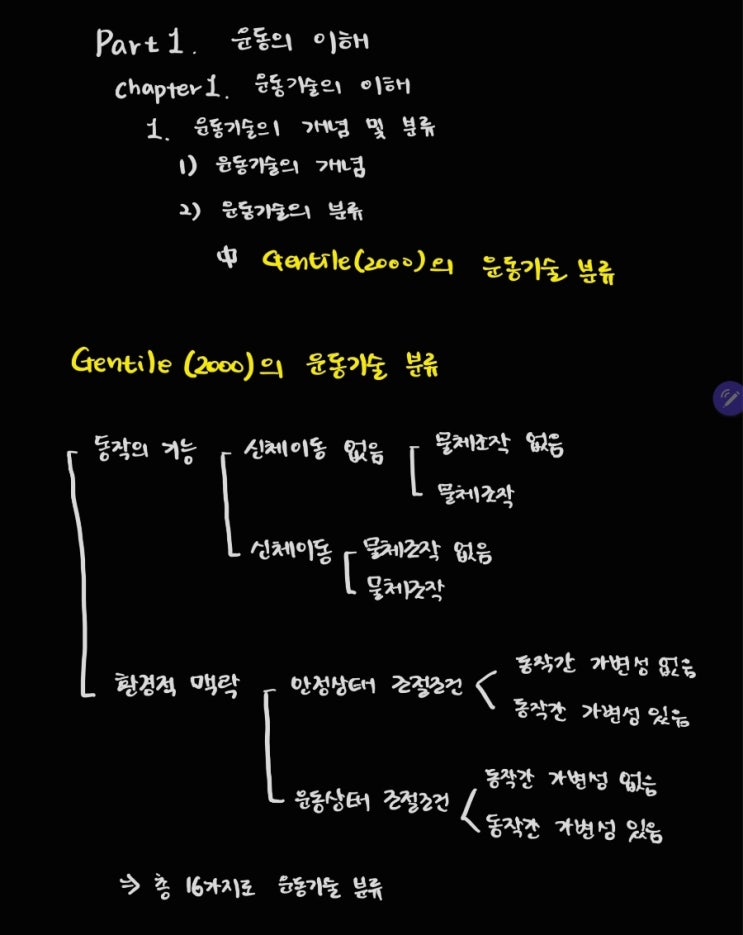 Part 1. 운동의 이해
chapter 1. 운동기술의 이해
1. 운동기술의 개념 및 분류
1) 운동기술의 개념
2) 운동기술의 분류
中 Gentile(2000)의 운동기술 분류
Gentile (2000)의 운동기술 분류
동작의 기능 신체이동 없음 물체조작 없음
물체조작
신체이동 물체조작 없음
물체조작
동작간 가변성 없음
환경적 맥락 안정상태 조절조건
동작간 가변성 있음
동작간 가변성 없음
운동상태 조절조건
동작간 가변성 있음
⇒ 총 16가지로 운동기술 분류